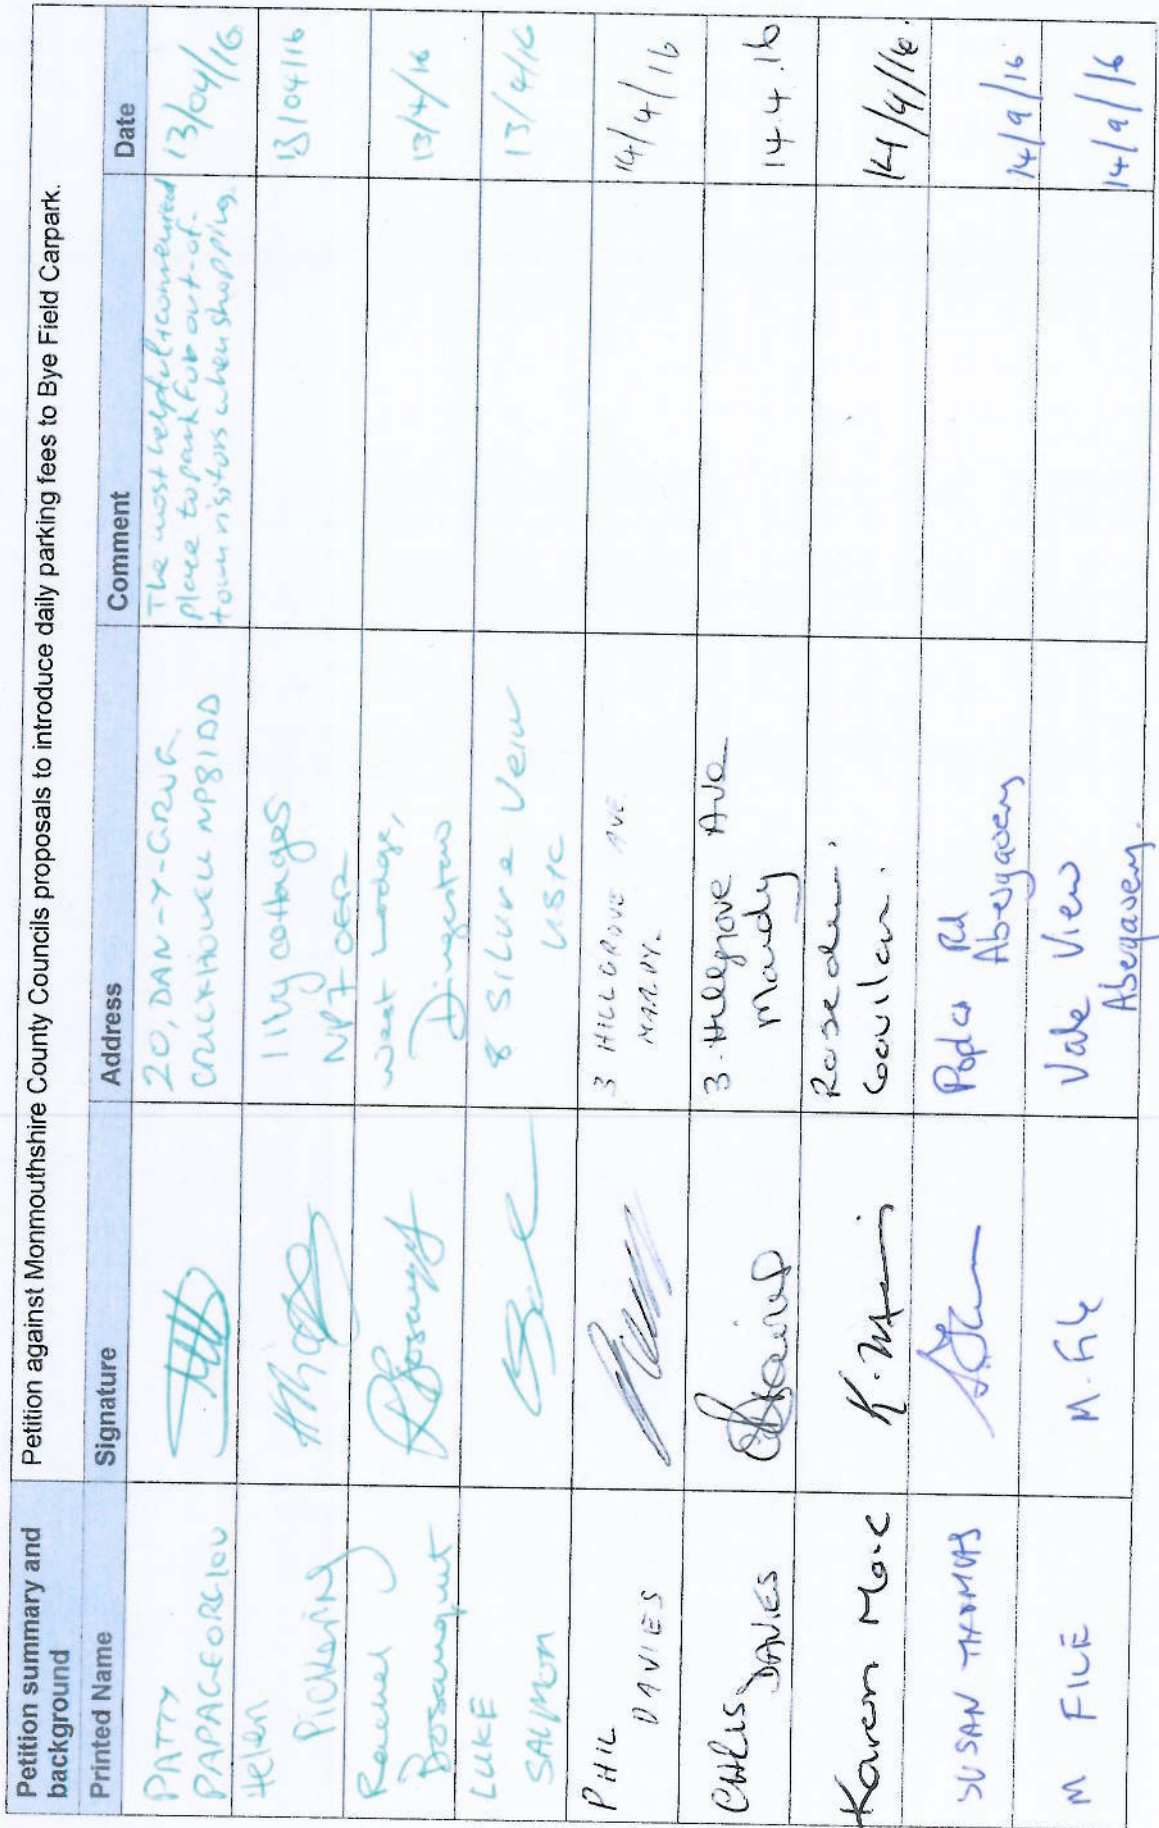 Petition summary and
background
Petition against Monmouthshire County Councils proposals to introduce daily parking fees to Bye Field Carpark.
Printed Name Signature Address Comment Date
PATTY
PAPAGEORGIOU
20, DAN-Y-GRUG
CRICKHOWELL NP8 1DD
The most helpful + convenient
place to park for out-of-
town visitors when shopping
13/04/16
Helen
Pickering
1 Ivy cottages
NP7
13/04/16
Rachel
Bosanquet
West Lodge,
Dingestow
13/4/16
LUKE
SALMON
8 SILURE VEIW
USK
13/4/16
PHIL
DAVIES
3 HILLGROVE AVE
MARDY.
14/4/16
CHRIS
DAVIES
3. Hillgrove Ave
Mardy
14.4.16
Karen
K.
Govilon.
14/4/16.
SUSAN THOMAS
Poplar Rd
Abergavenny
14/9/16
M FILE
M. File
Vale View
Abegaveny.
14/9/16